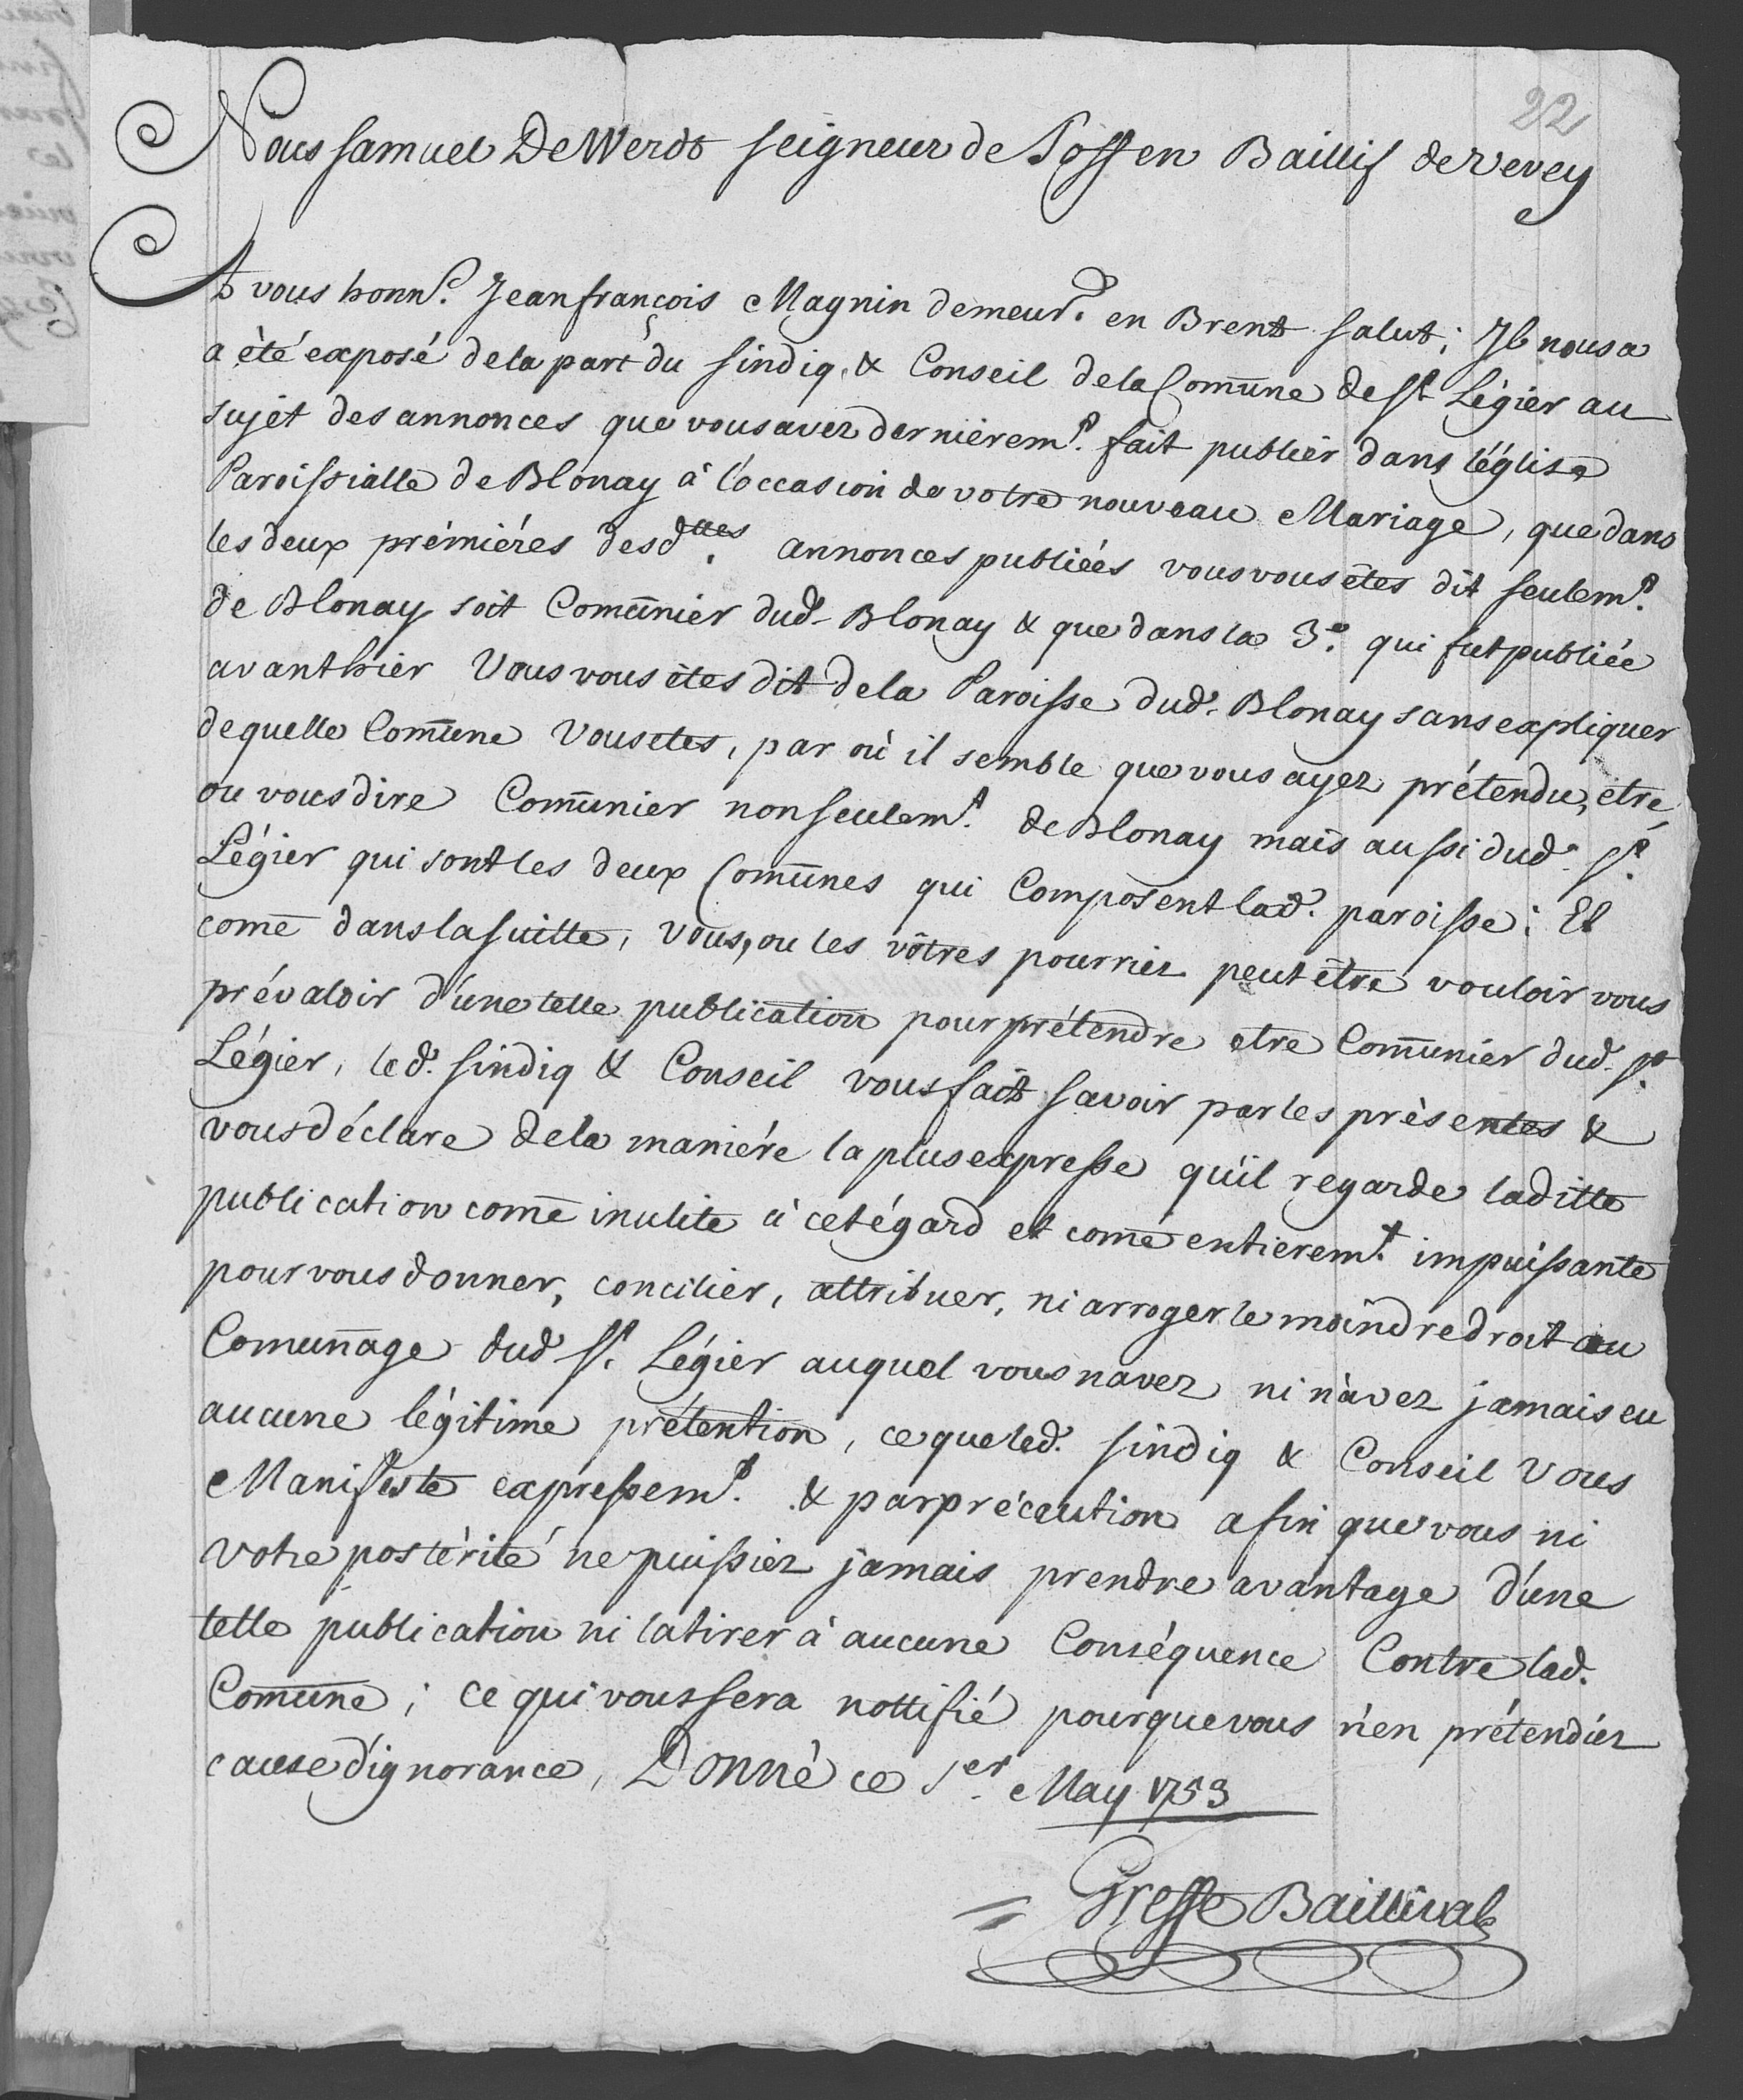 22
Nous Samuel De Werdt Seigneur de Toffen Baillif de Vevey
A vous honn.^e Jean françois Magnin demeur.^t en Brent Salut; Il nous a
a èté exposé de la part du Sindiq, & Conseil de la Comune de S^t Légier au
sujèt des annonces que vous avez dernièrem.^t fait publier dans l'église
Paroissialle de Blonay à l'occasion de votre nouveau Mariage, que dans
les deux prémiéres desd.^ttes annonces publiées vous vous êtes dit seulem.^t
de Blonay soit Comunier dud.^t Blonay & que dans la 3.^e qui fut publiée
avanthier Vous vous êtes dit de la Paroisse dud.^t Blonay sans expliquer
de quelle Comune Vous etes, par où il semble que vous ayez prétendu, etre,
ou vous dire Comunier non seulem.^t de Blonay mais aussi dud.^t S.^t
Légier qui sont les deux Comunes qui Composent lad.^e paroisse: Et
come dans la suitte, vous, ou les vôtres pourriez peut être vouloir vous
prévaloir d'une telle publication pour prétendre etre Comunier dud.^t S.^t
Légier, led.^t Sindiq & Conseil vous fait savoir par les présentes &
vous déclare de la maniére la plus expresse qu'il regarde laditte
publication come inutile à cet égard et come entierem.^t impuissante
pour vous donner, concilier, attribuer, ni arroger le moindre droit au
Comunage dud.^t S.^t Légier auquel vous navez ni n'avez jamais eu
aucune légitime prétention, ce que led.^t Sindiq & Conseil Vous
Manifeste expressem.^t & par précaution afin que vous ni
votre postérité ne puissiez jamais prendre avantage d'une
telle publication ni la tirer à aucune Conséquence Contre lad.^e
Comune; ce qui vous sera nottifié pour que vous n'en prétendiez
cause d'ignorance, Donné ce 1.^er May 1753
Greffe Baillival